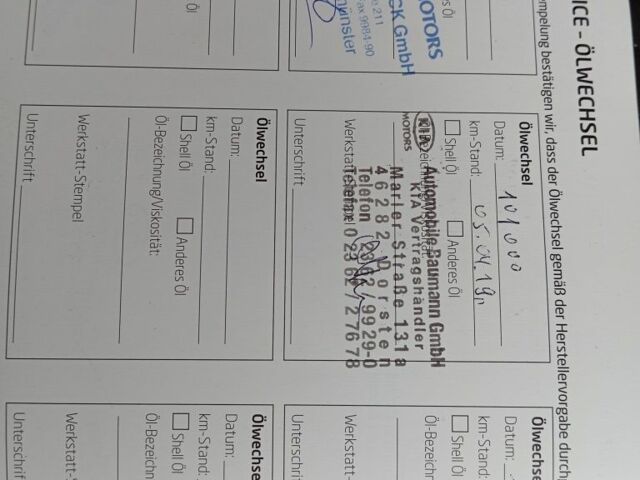 ICE - ÖLWECHSEL
empelung bestätigen wir, dass der Ölwechsel gemäß der Herstellervorgabe durch
Öl
es Öl
MOTORS
CK GmbH
e 211
Fax 9984-90
münster
Ölwechsel
Datum: 101000
km-Stand: 05.04.19
Shell Öl
Anderes Öl
KIA
MOTORS
Automobile Baumann GmbH
KIA Vertragshändler
Marler Straße 131a
46282 Dorsten
Telefon 02362/9929-0
Telefax 02362/27678
Werkstatt-Stempel
Unterschrift
Ölwechsel
Datum:
km-Stand:
Shell Öl
Anderes Öl
Öl-Bezeichnung/Viskosität:
Werkstatt-Stempel
Unterschrift
Ölwechse
Datum:
km-Stand:
Shell Öl
Öl-Bezeichn
Werkstatt-
Unterschrift
Ölwechse
Datum:
km-Stand:
Shell Öl
Öl-Bezeichn
Werkstatt-S
Unterschrift